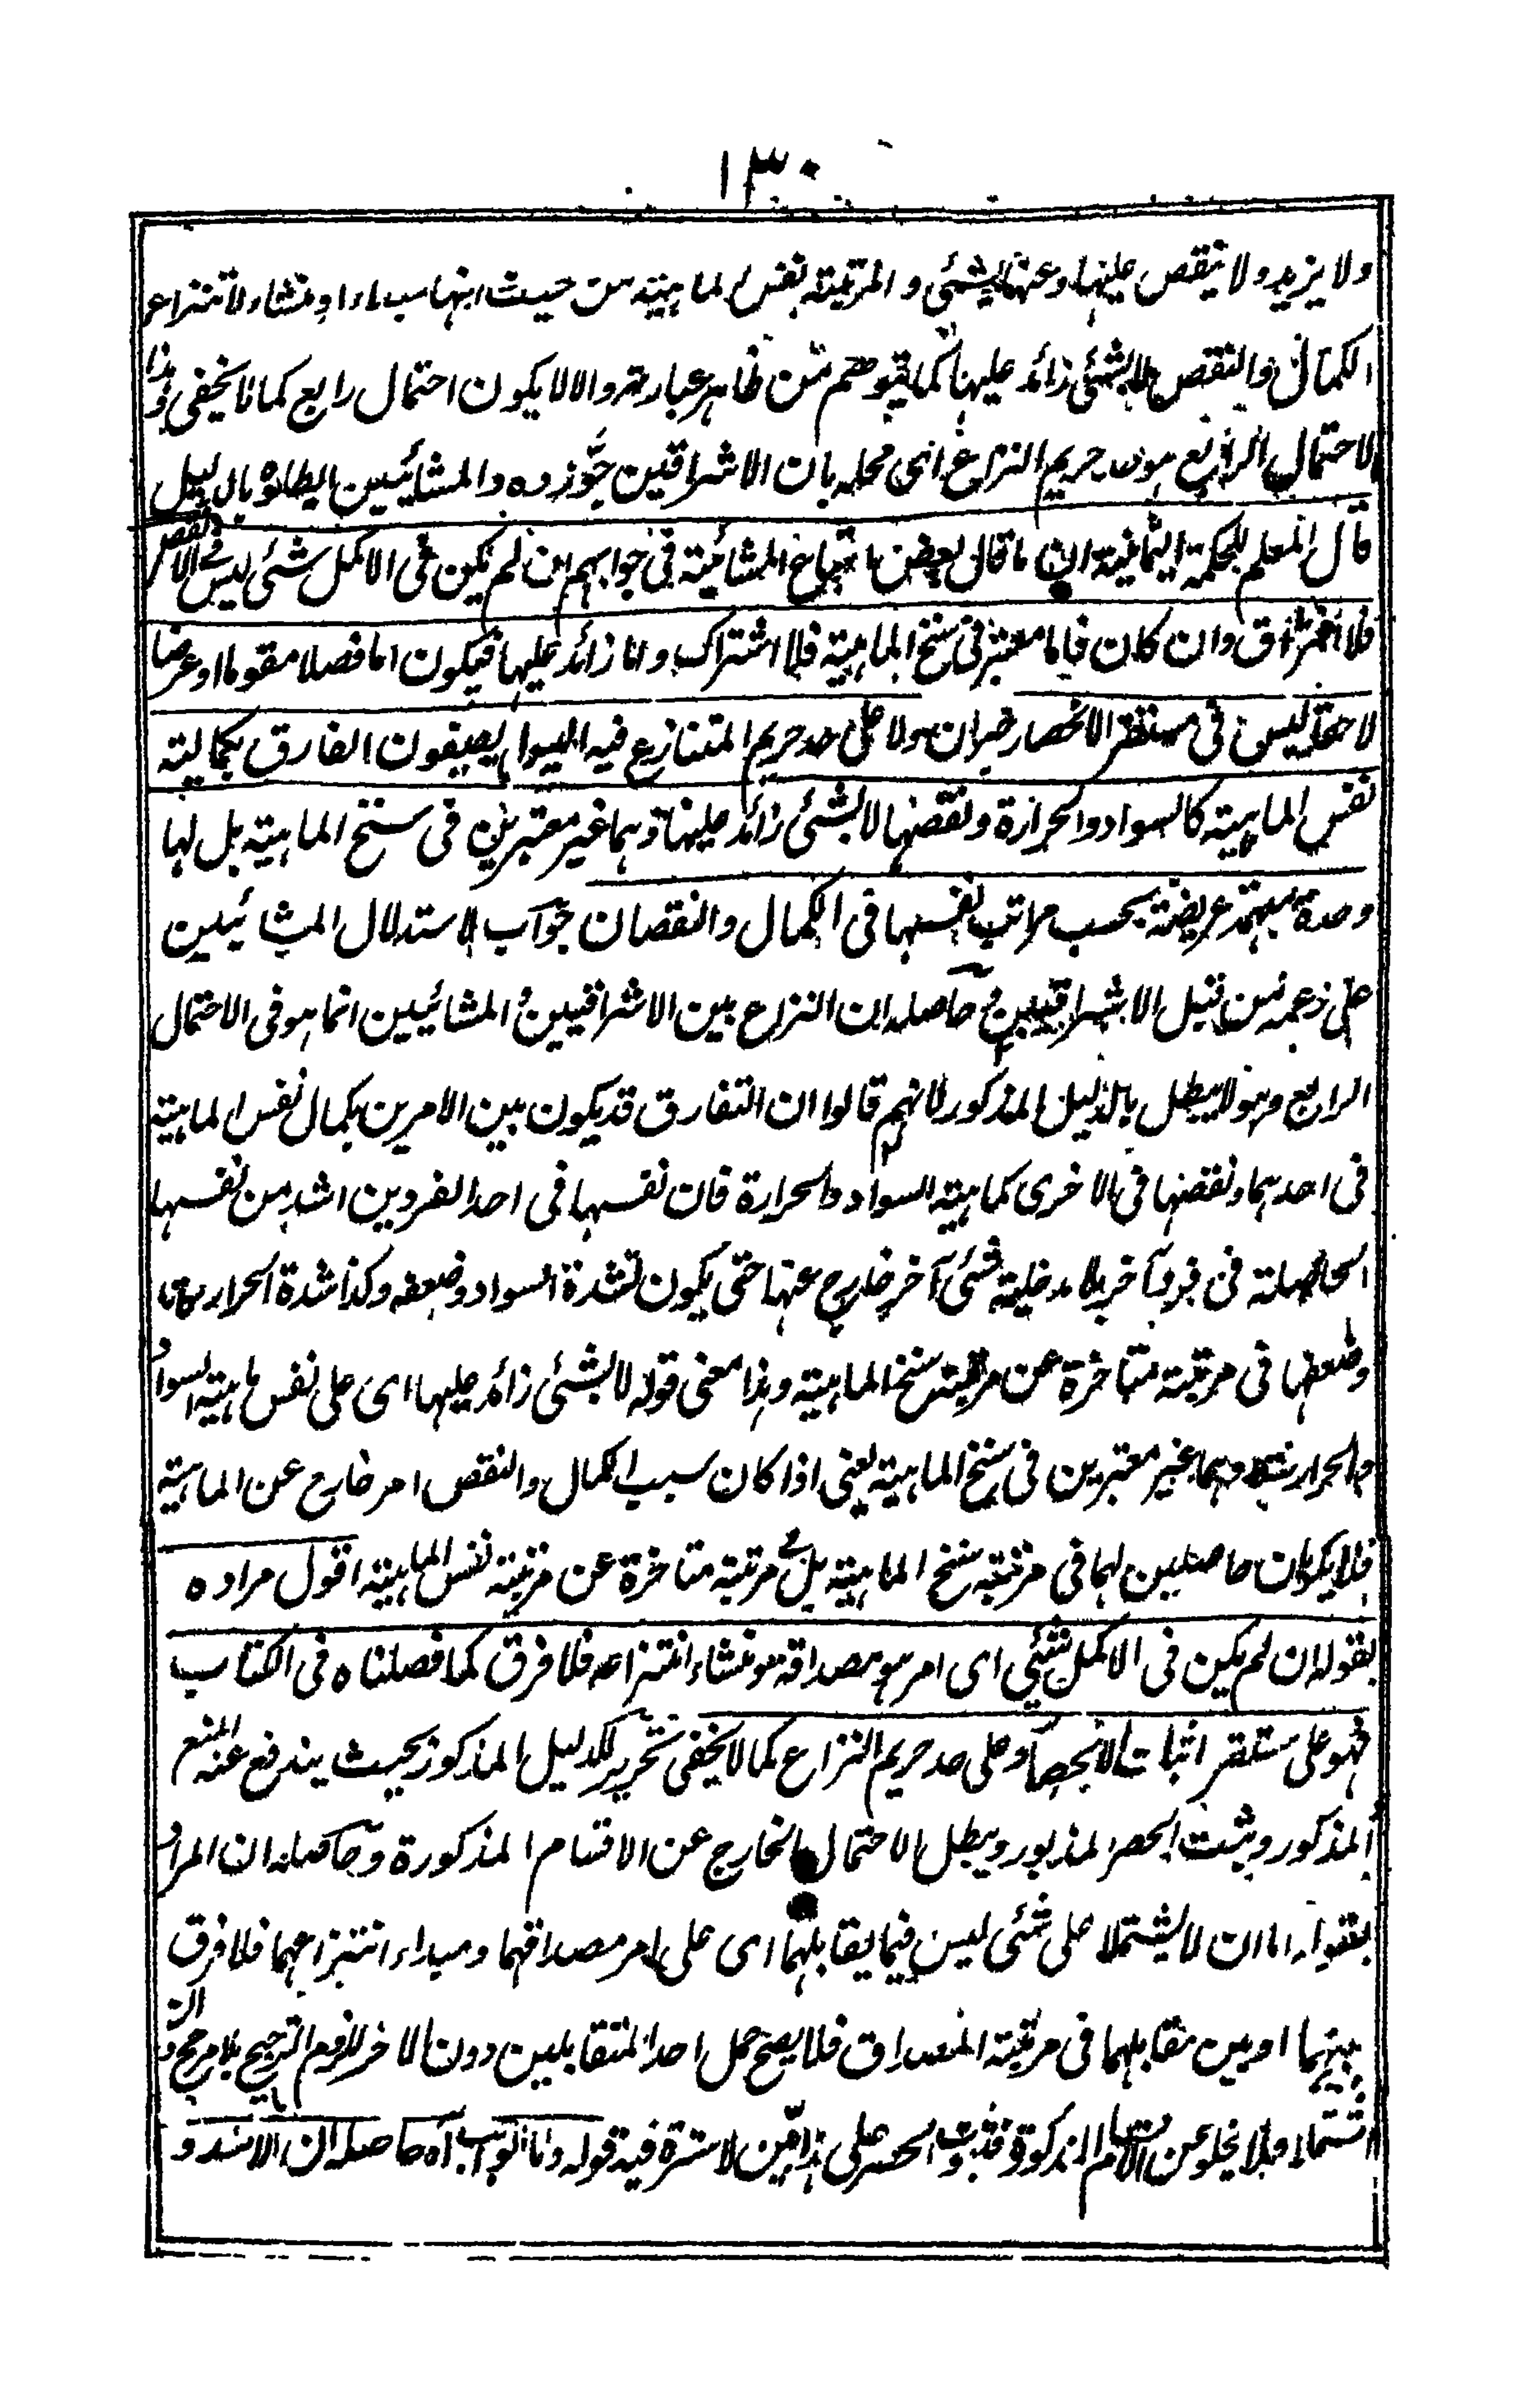 ١٣٠
ولا يزيد ولا ينقص عليها وعنها لشئ و المرتبة بنفس الماهية من حيث انها مبداء او منشاء لانتزاع
الكمال والنقص لا بشئ زائد عليها كما يتوهم من ظاهر عبارته والا لا يكون احتمال رابع كما لا يخفى وهذا
الاحتمال الرابع هو حريم النزاع اى محله بان الاشراقيين جوّزوه والمشائيين ابطلوه بالدليل
قال المعلم للحكمة اليمانية ان ما قال بعض اتباع المشائية فى جوابهم ان لم يكن فى الاكمل شئ ليس فى الانقص
فلا افتراق وان كان فاما معتبر فى سنخ الماهية فلا اشتراك واما زائد عليها فيكون اما فصلا مقوما او عرضا
لاحقا ليس فى مستقر الانحصار ولا على حد حريم المتنازع فيه اليسوا يصيفون الفارق بكمالية
نفس الماهية كالسواد والحرارة ونقصها لا بشئ زائد عليها وهما غير معتبرين فى سنخ الماهية بل لها
وحدة مبهمة عريضة بحسب مراتب نفسها فى الكمال والنقصان جواب لاستدلال المشائيين
على زعمه من قبل الاشراقيين حاصله ان النزاع بين الاشراقيين والمشائيين انما هو فى الاحتمال
الرابع وهو لا يبطل بالدليل المذكور لانهم قالوا ان التفارق قد يكون بين الامرين بكمال نفس الماهية
فى احدهما ونقصها فى الاخرى كماهية السواد والحرارة فان نفسها فى احد الفردين اشد من نفسها
الحاصلة فى فرد آخر بلا مدخلية شئ آخر خارج عنها حتى يكون لشدة السواد وضعفه وكذا شدة الحرارة
وضعفها فى مرتبة متاخرة عن مرتبة سنخ الماهية وهذا معنى قوله لا بشئ زائد عليها اى على نفس ماهية السواد
والحرارة وهما غير معتبرين فى سنخ الماهية يعنى اذا كان سبب الكمال والنقص امر خارج عن الماهية
فلا يكونان حاصلين لهما فى مرتبة سنخ الماهية بل فى مرتبة متاخرة عن مرتبة نفس الماهية اقول مراده
بقوله ان لم يكن فى الاكمل شئ اى امر هو مصداقه ومنشاء انتزاعه فلا فرق كما فصلناه فى الكتاب
فهو على مستقر اثبات الانحصار وعلى حد حريم النزاع كما لا يخفى تحرير للدليل المذكور بحيث يندفع عنه المنع
المذكور ويثبت الحصر المذبور ويبطل الاحتمال الخارج عن الاقسام المذكورة وحاصله ان المراد
بقوله اما ان لا يشتملا على شئ ليس فيما يقابلهما اى على امر مصداقهما ومبداء انتزاعهما فلا فرق
بينهما او بين مقابلهما فى مرتبة المصداق فلا يصح حمل احد المتقابلين دون الاخر للزوم الترجيح بلا مرجح وان
اشتملا فلا يخلو عن الاقسام المذكورة فثبوت الحصر على هذا مبيّن لا سترة فيه قوله واما الجواب اه حاصله ان الاشد و